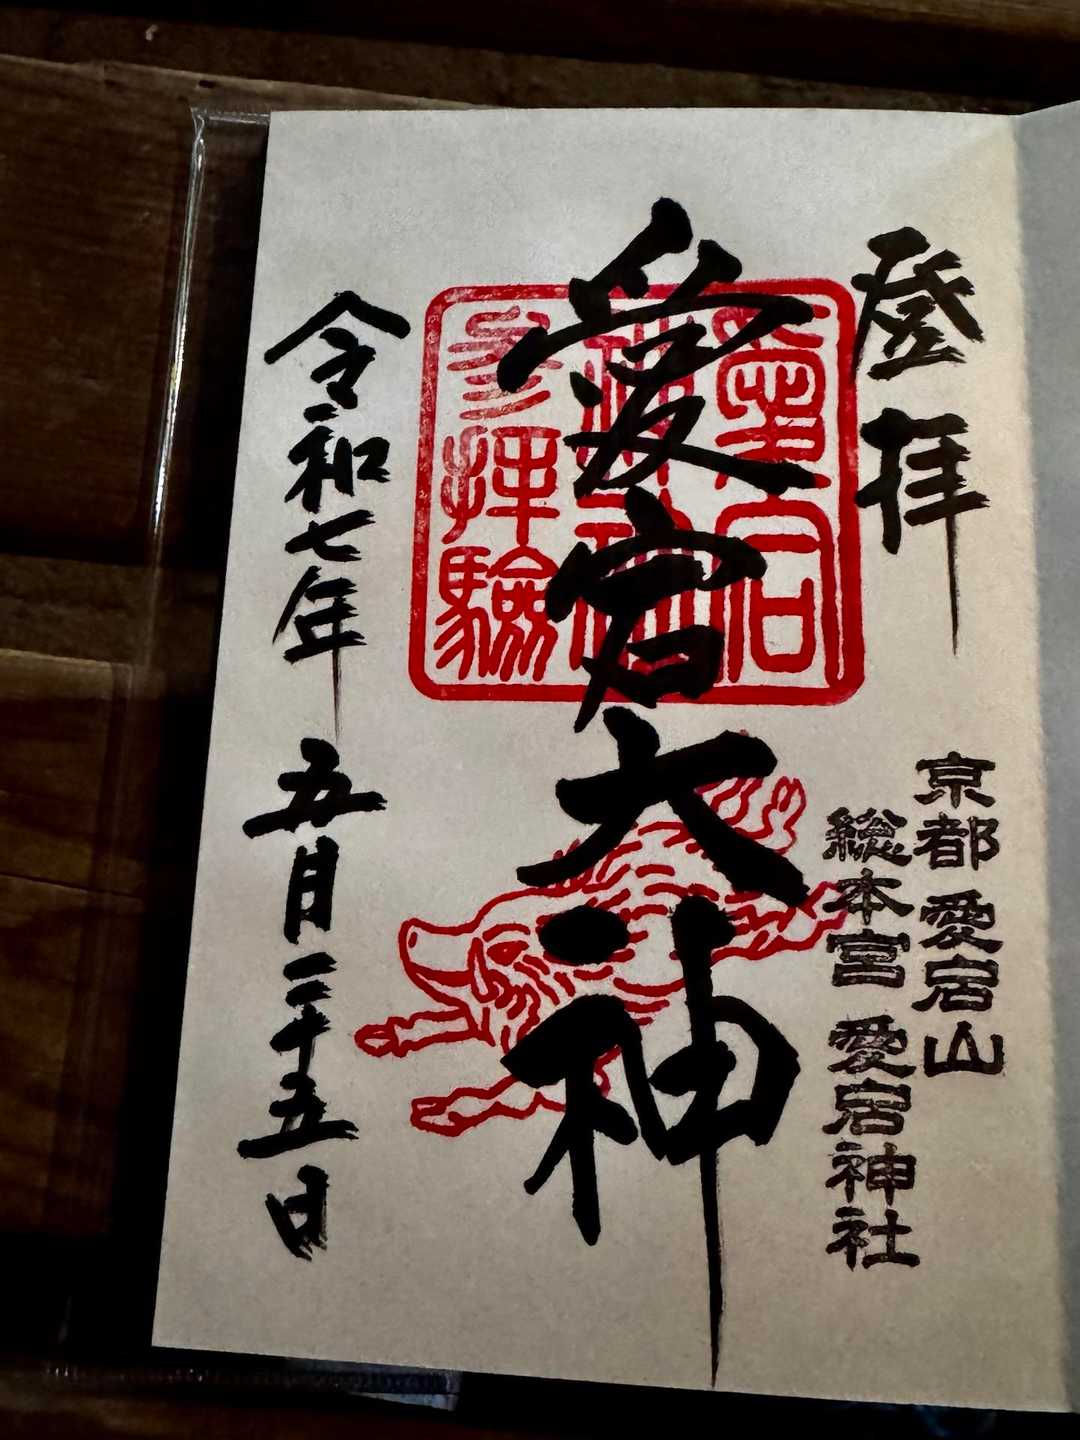 登拝
京都 愛宕山
総本宮 愛宕神社
愛宕大神
愛宕
神社
参拝驗
令和七年 五月二十五日